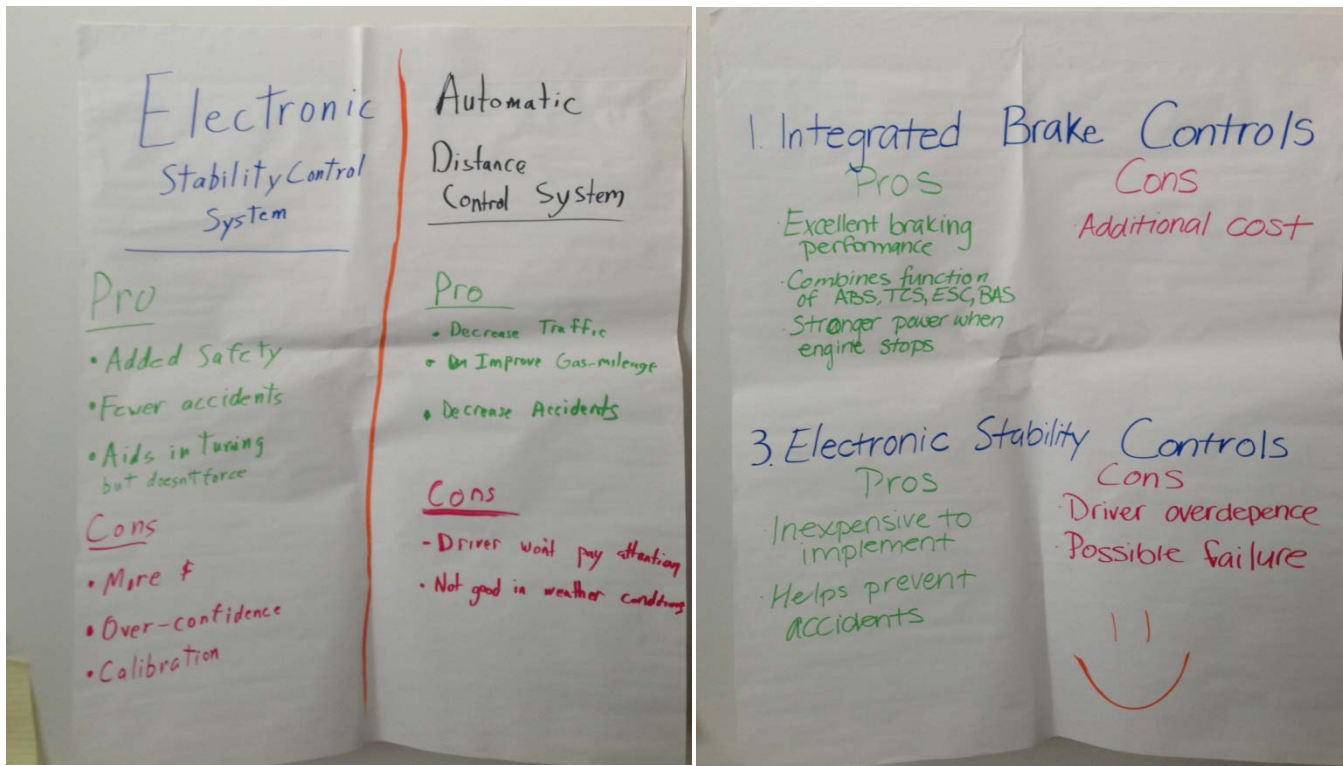 Electronic
Stability Control
System
Pro
• Added Safety
• Fewer accidents
• Aids in Turning
but doesn't force
Cons
• More $
• Over-confidence
• Calibration
Automatic
Distance
Control System
Pro
• Decrease Traffic
• Improve Gas-mileage
• Decrease Accidents
Cons
- Driver won't pay attention
• Not good in weather conditions
1. Integrated Brake Controls
Pros
· Excellent braking
performance
· Combines function
of ABS, TCS, ESC, BAS
· Stronger power when
engine stops
Cons
· Additional cost
3. Electronic Stability Controls
Pros
· Inexpensive to
implement
· Helps prevent
accidents
Cons
· Driver overdepence
· Possible failure